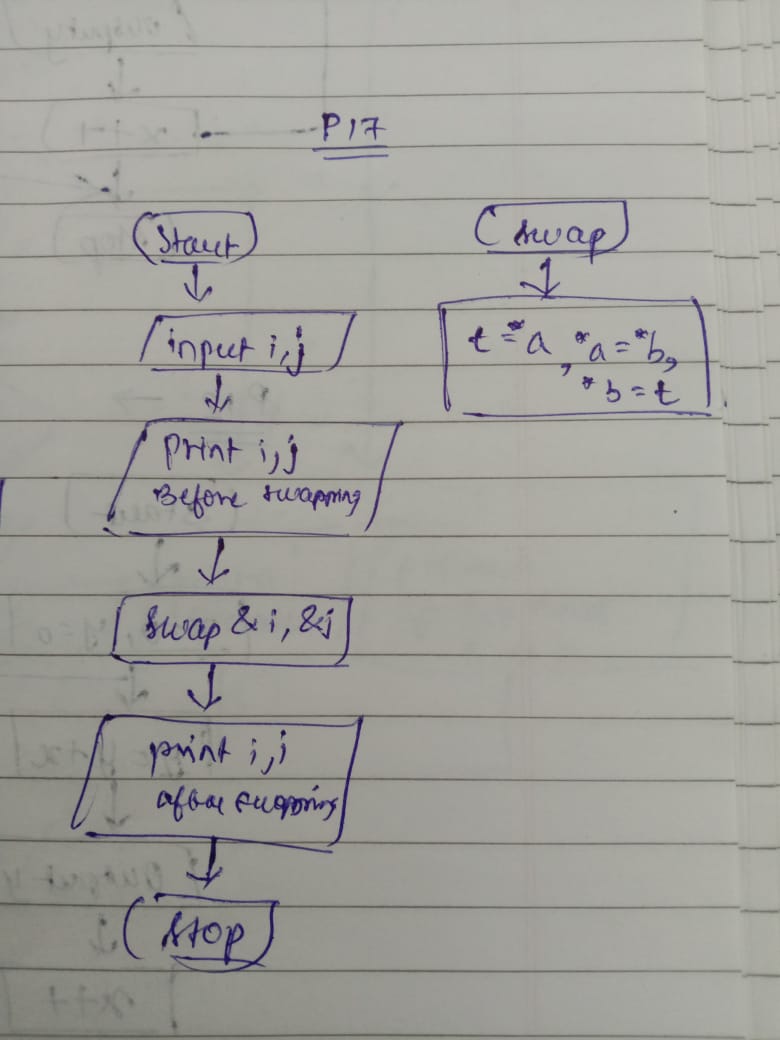 P17
Start
input i, j
print i, j
Before swapping
swap &i, &j
print i, j
after swapping
Stop
swap
t = *a, *a = *b,
*b = t